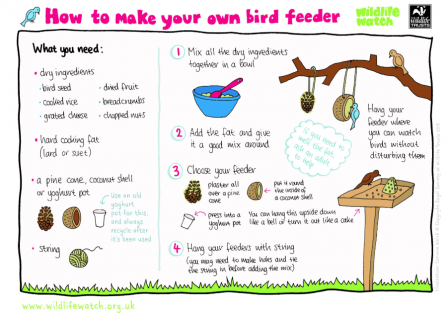 How to make your own bird feeder
wildlife watch
wildlife TRUSTS
What you need:
• dry ingredients
• bird seed • dried fruit
• cooked rice • breadcrumbs
• grated cheese • chopped nuts
• hard cooking fat
(lard or suet)
a pine cone, coconut shell
or yoghurt pot
use an old
yoghurt
pot for this,
and always
recycle after
it's been used
• string
1 Mix all the dry ingredients
together in a bowl
2 Add the fat and give
it a good mix around
If you need to
melt the fat
ask an adult
to help
3 Choose your feeder
plaster all
over a pine
cone
put it round
the inside of
a coconut shell
press into a
yoghurt pot
You can hang this upside down
like a bell or turn it out like a cake
4 Hang your feeders with string
(you may need to make holes and tie
the string in before adding the mix)
Hang your
feeder where
you can watch
birds without
disturbing them
www.wildlifewatch.org.uk